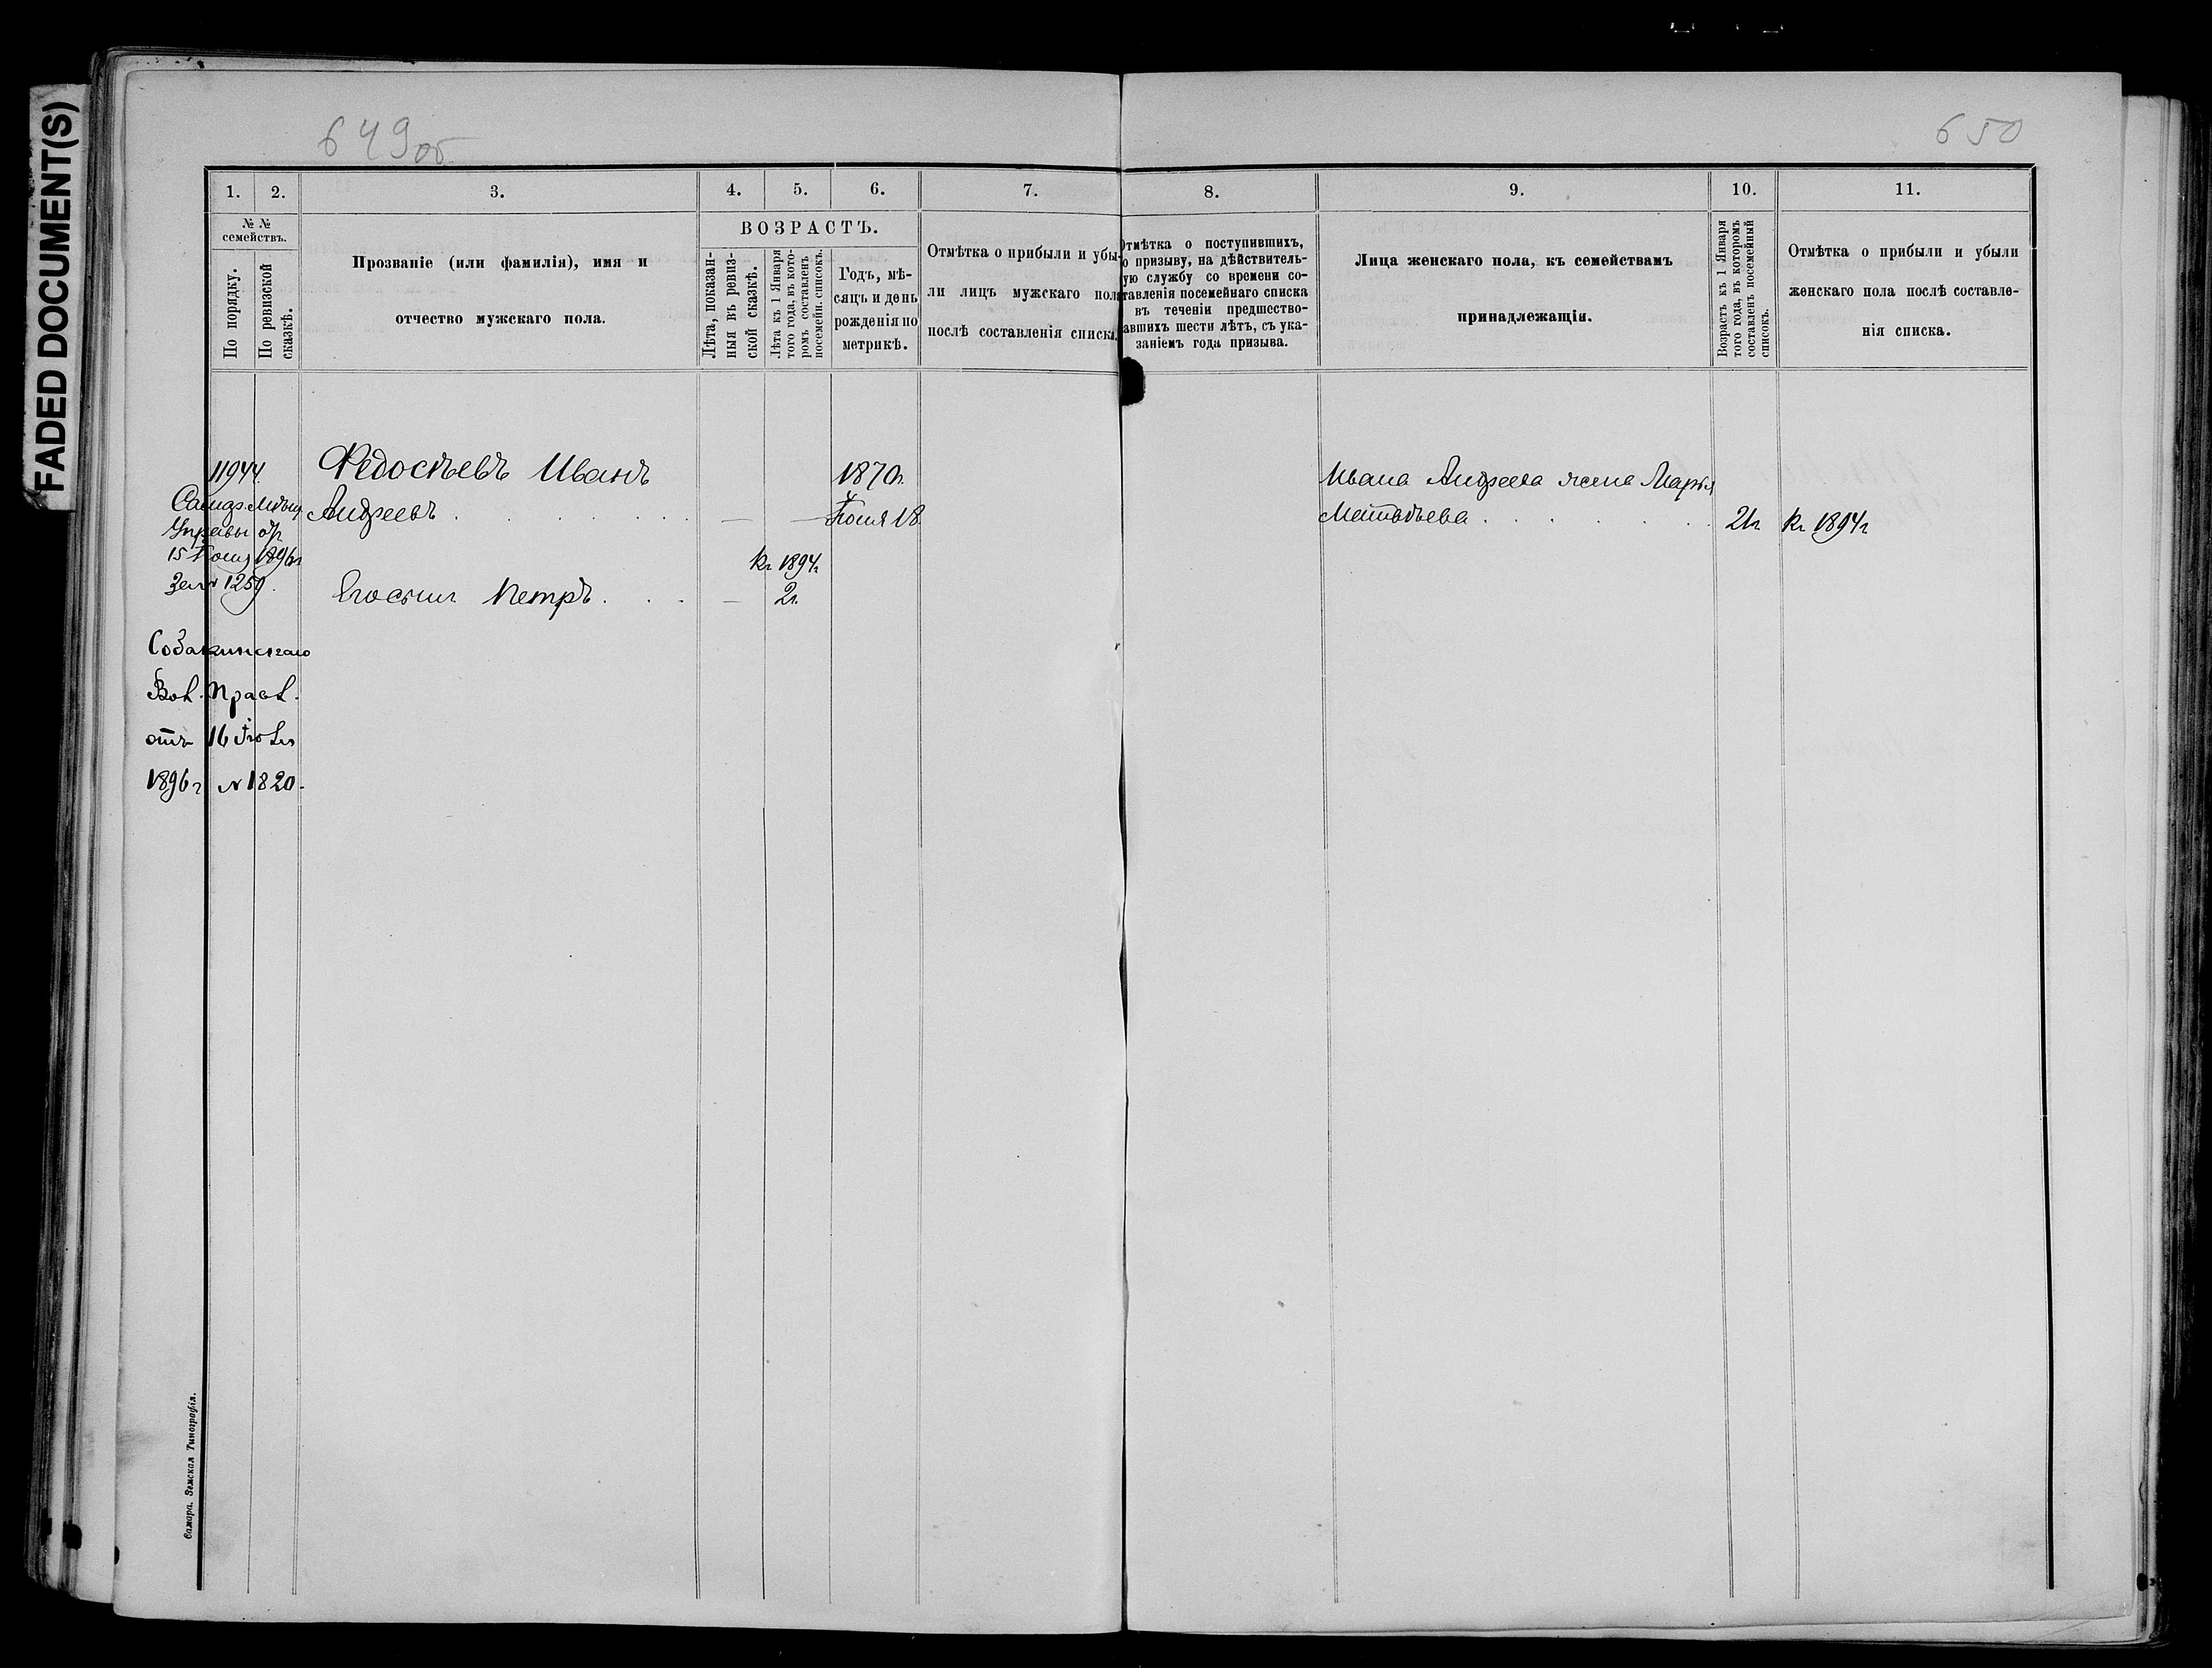 FADED DOCUMENT(S)
649об
650
1.
2.
3.
4.
5.
6.
7.
8.
9.
10.
11.
№ №
семействъ.
По порядку.
По ревизской
сказкѣ.
Прозваніе (или фамилія), имя и
отчество мужскаго пола.
ВОЗРАСТЪ.
Лѣта, показан-
ныя въ ревиз-
ской сказкѣ.
Лѣта къ 1 Января
того года, въ кото-
ромъ составленъ
посемейн. списокъ.
Годъ, мѣ-
сяцъ и день
рожденія по
метрикѣ.
Отмѣтка о прибыли и убы-
ли лицъ мужскаго пола
послѣ составленія списка.
Отмѣтка о поступившихъ,
о призыву, на дѣйствитель-
ую службу со времени со-
тавленія посемейнаго списка
въ теченіи предшество-
авшихъ шести лѣтъ, съ ука-
заніемъ года призыва.
Лица женскаго пола, къ семействамъ
принадлежащія.
Возрастъ къ 1 Января
того года, въ которомъ
составленъ посемейный
списокъ.
Отмѣтка о прибыли и убыли
женскаго пола послѣ составле-
нія списка.
11944.
Федосѣевъ Иванъ
1870г.
Ивана Андреева жена Марья
Андреевъ . . . . . . — — Іюня 18
Матвѣева . . . . . . 21г Къ 1894г
Управы
15 1896г
№ 1259.
Къ 1894г
Его сынъ Петръ . . . — 2г.
Собакинскаго
Вол. Правл.
отъ 16 Іюля
1896г № 1820.
Самара. Земская Типографія.